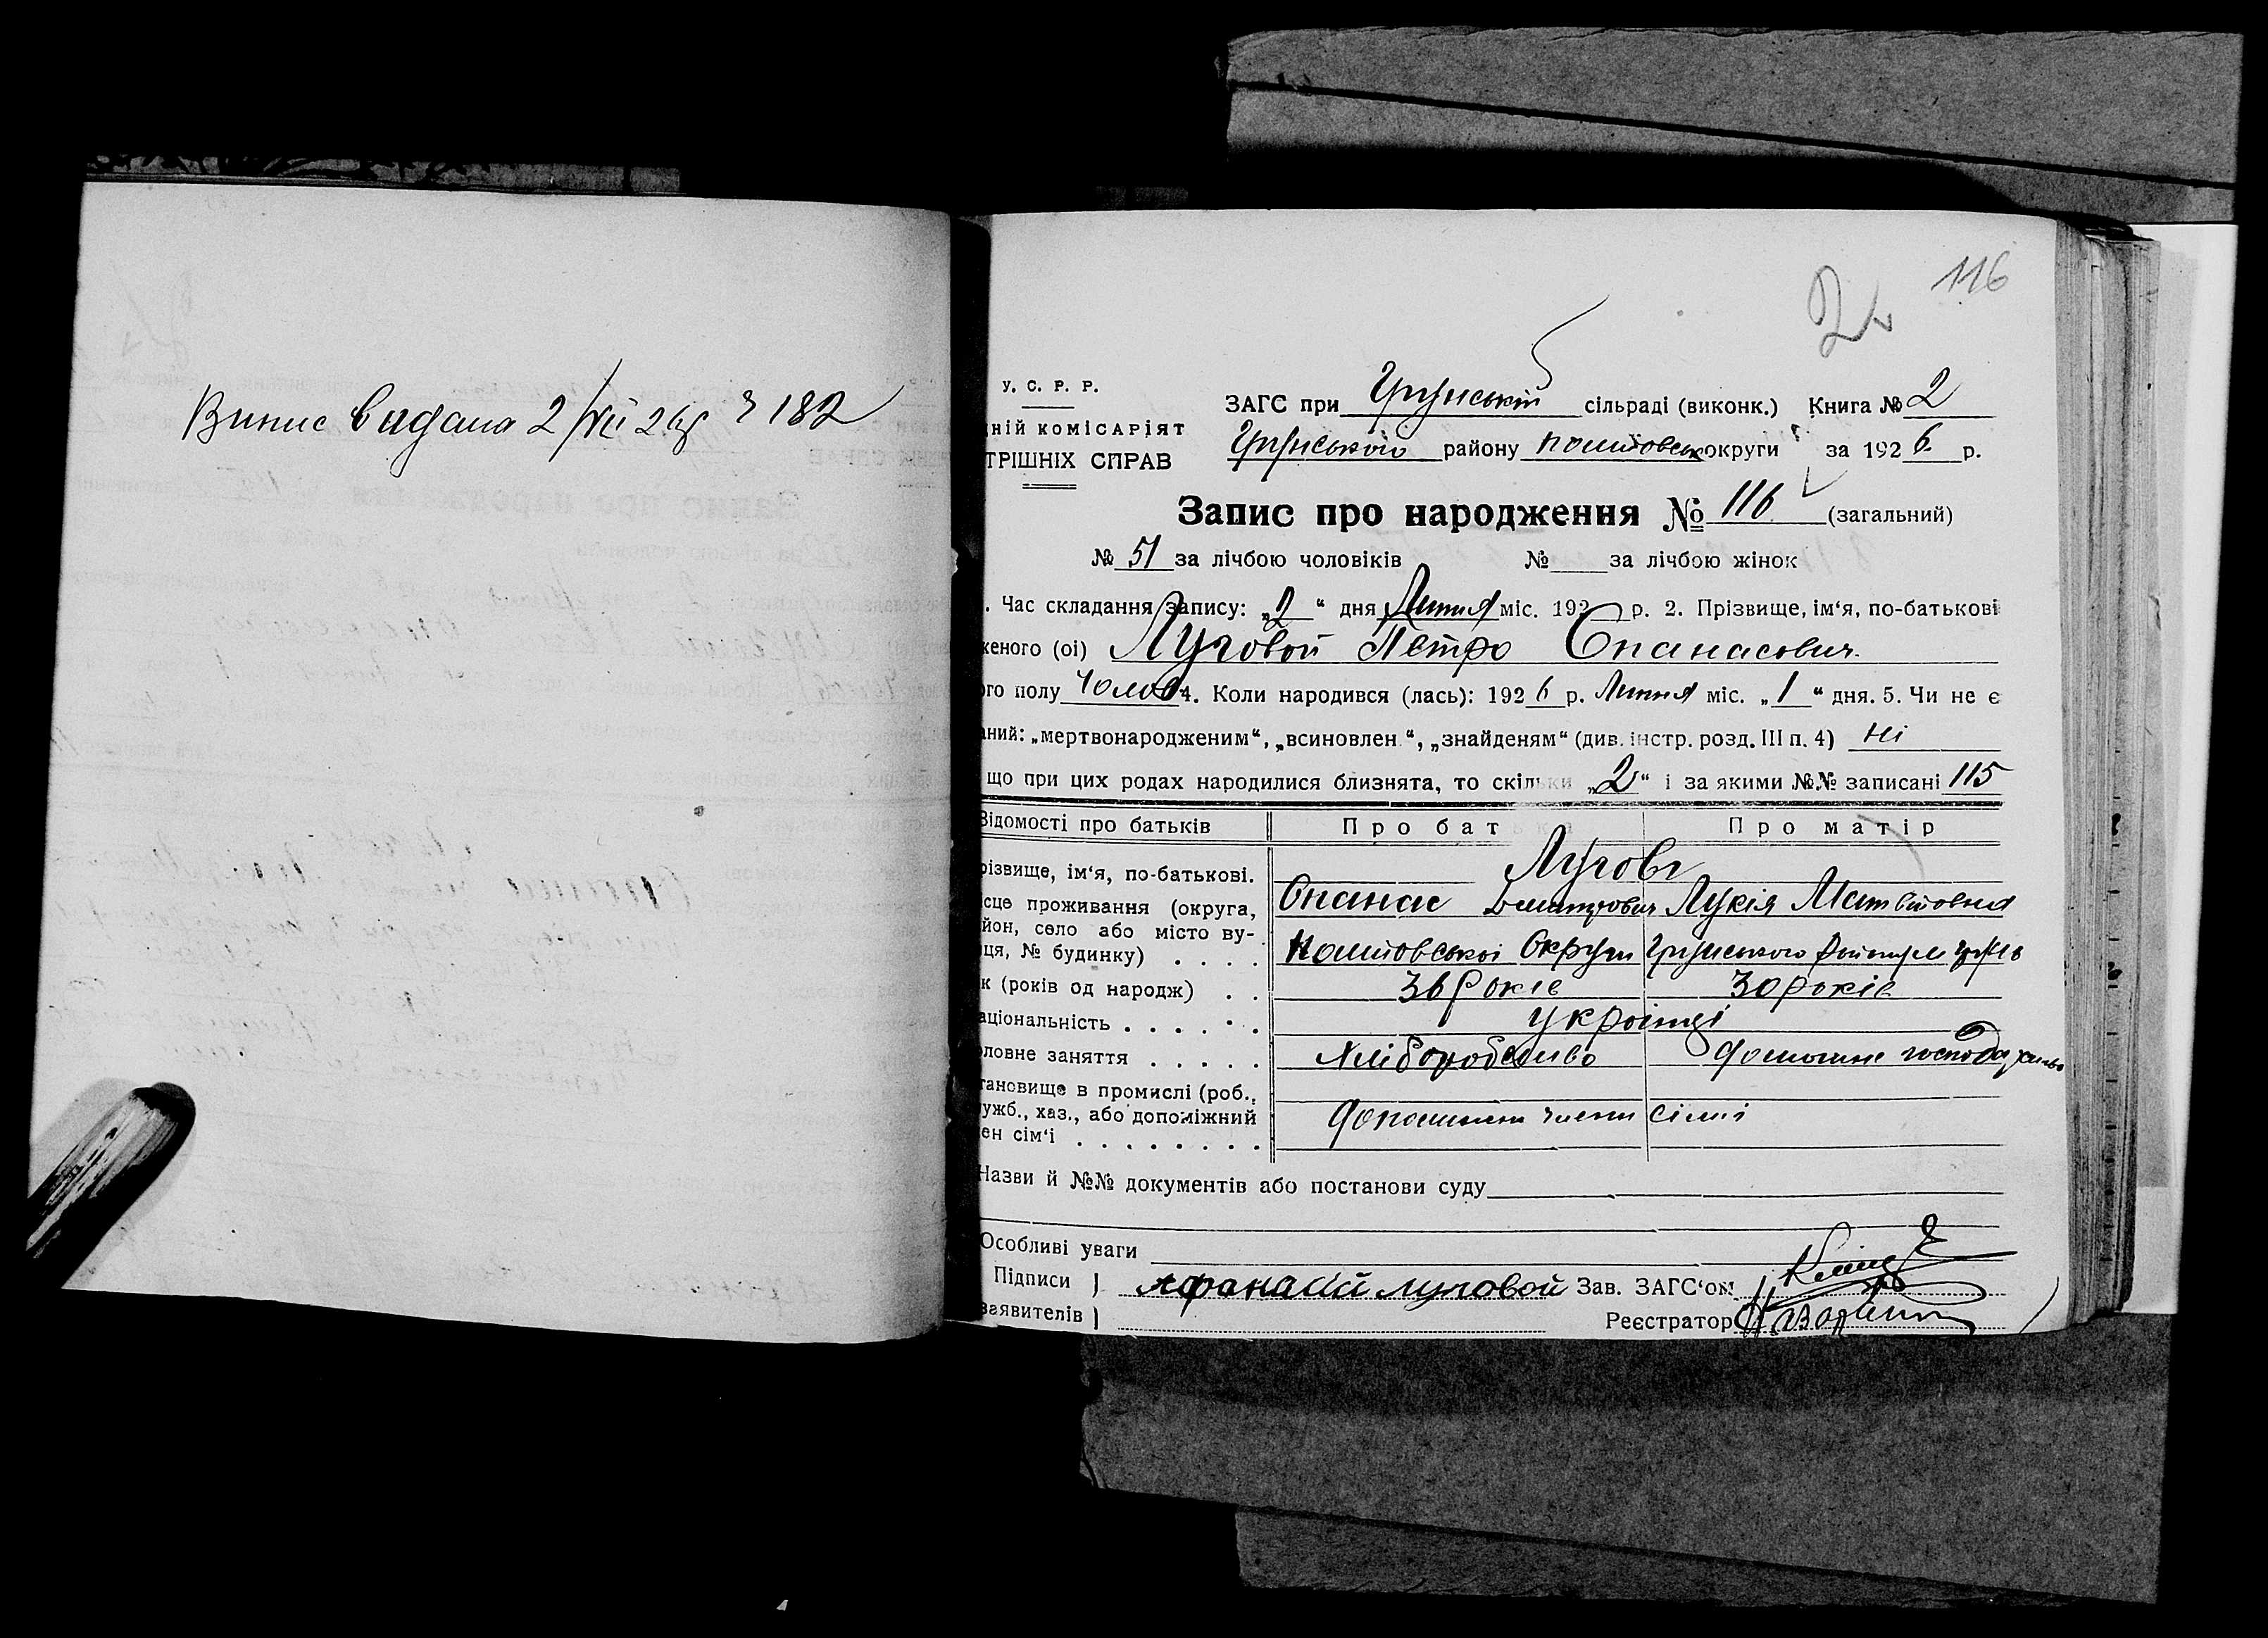 Випис видана 2/VII 26 р 182
116
2
У. С. Р. Р.
ній КОМІСАРІЯТ
ТРІШНІХ СПРАВ
ЗАГС при Грунській сільраді (виконк.) Книга № 2
Грунського району округи за 1926 р.
Запис про народження № 116 (загальний)
№ 51 за лічбою чоловіків № за лічбою жінок
. Час складання запису: „2“ дня Липня міс. 192 р. 2. Прізвище, ім‘я, по-батькові
женого (ої) Луговой Петро Опанасович.
ого полу Чолов 4. Коли народився (лась): 1926 р. Липня міс. „1“ дня. 5. Чи не є
аний: „мертвонародженим“, „всиновлен.“, „знайденям“ (див. інстр. розд. III п. 4) Ні
що при цих родах народилися близнята, то скільки „2“ і за якими №№ записані 115
Відомості про батьків Про батька Про матір
різвище, ім‘я, по-батькові. Лугові
Опанас Дмитрович Лукія Матвіовна
сце проживання (округа,
йон, село або місто ву-
ця, № будинку) . . . . Округи Грунського
к (років од народж) . . 36 Років 30 Років
аціональність . . . . . . Українці
ловне заняття . . . . . Хліборобство домашне господарство
тановище в промислі (роб.,
ужб., хаз., або допоміжний
ен сім‘ї . . . . . . . . члени сімї
Назви й №№ документів або постанови суду
Особливі уваги
Підписи Афанасій Луговой Зав. ЗАГС‘ом
заявителів Реєстратор